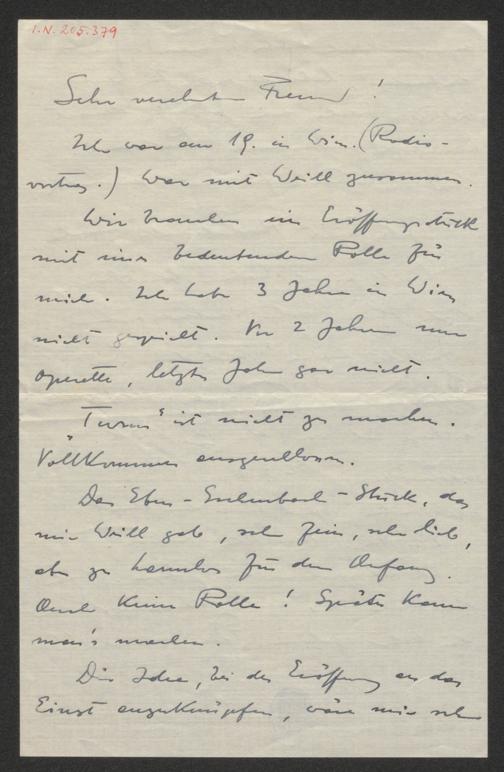 I.N. 205.379
Sehr verehrter Freund!
Ich war am 19. in Wien. (Radio-
vortrag.) War mit Weill zusammen.
Wir brauchen ein Eröffnungsstück
mit einer bedeutenden Rolle für
mich. Ich habe 3 Jahre in Wien
nicht gespielt. Vor 2 Jahren nur
Operette, letztes Jahr gar nicht.
"Turm" ist nicht zu machen.
Vollkommen ausgeschlossen.
Das Ebner-Eschenbach-Stück, das
mir Weill gab, sehr fein, sehr lieb,
aber zu harmlos für den Anfang.
Auch keine Rolle! Später kann
man's machen.
Die Idee, bei der Eröffnung an das
Einst anzuknüpfen, wäre mir sehr